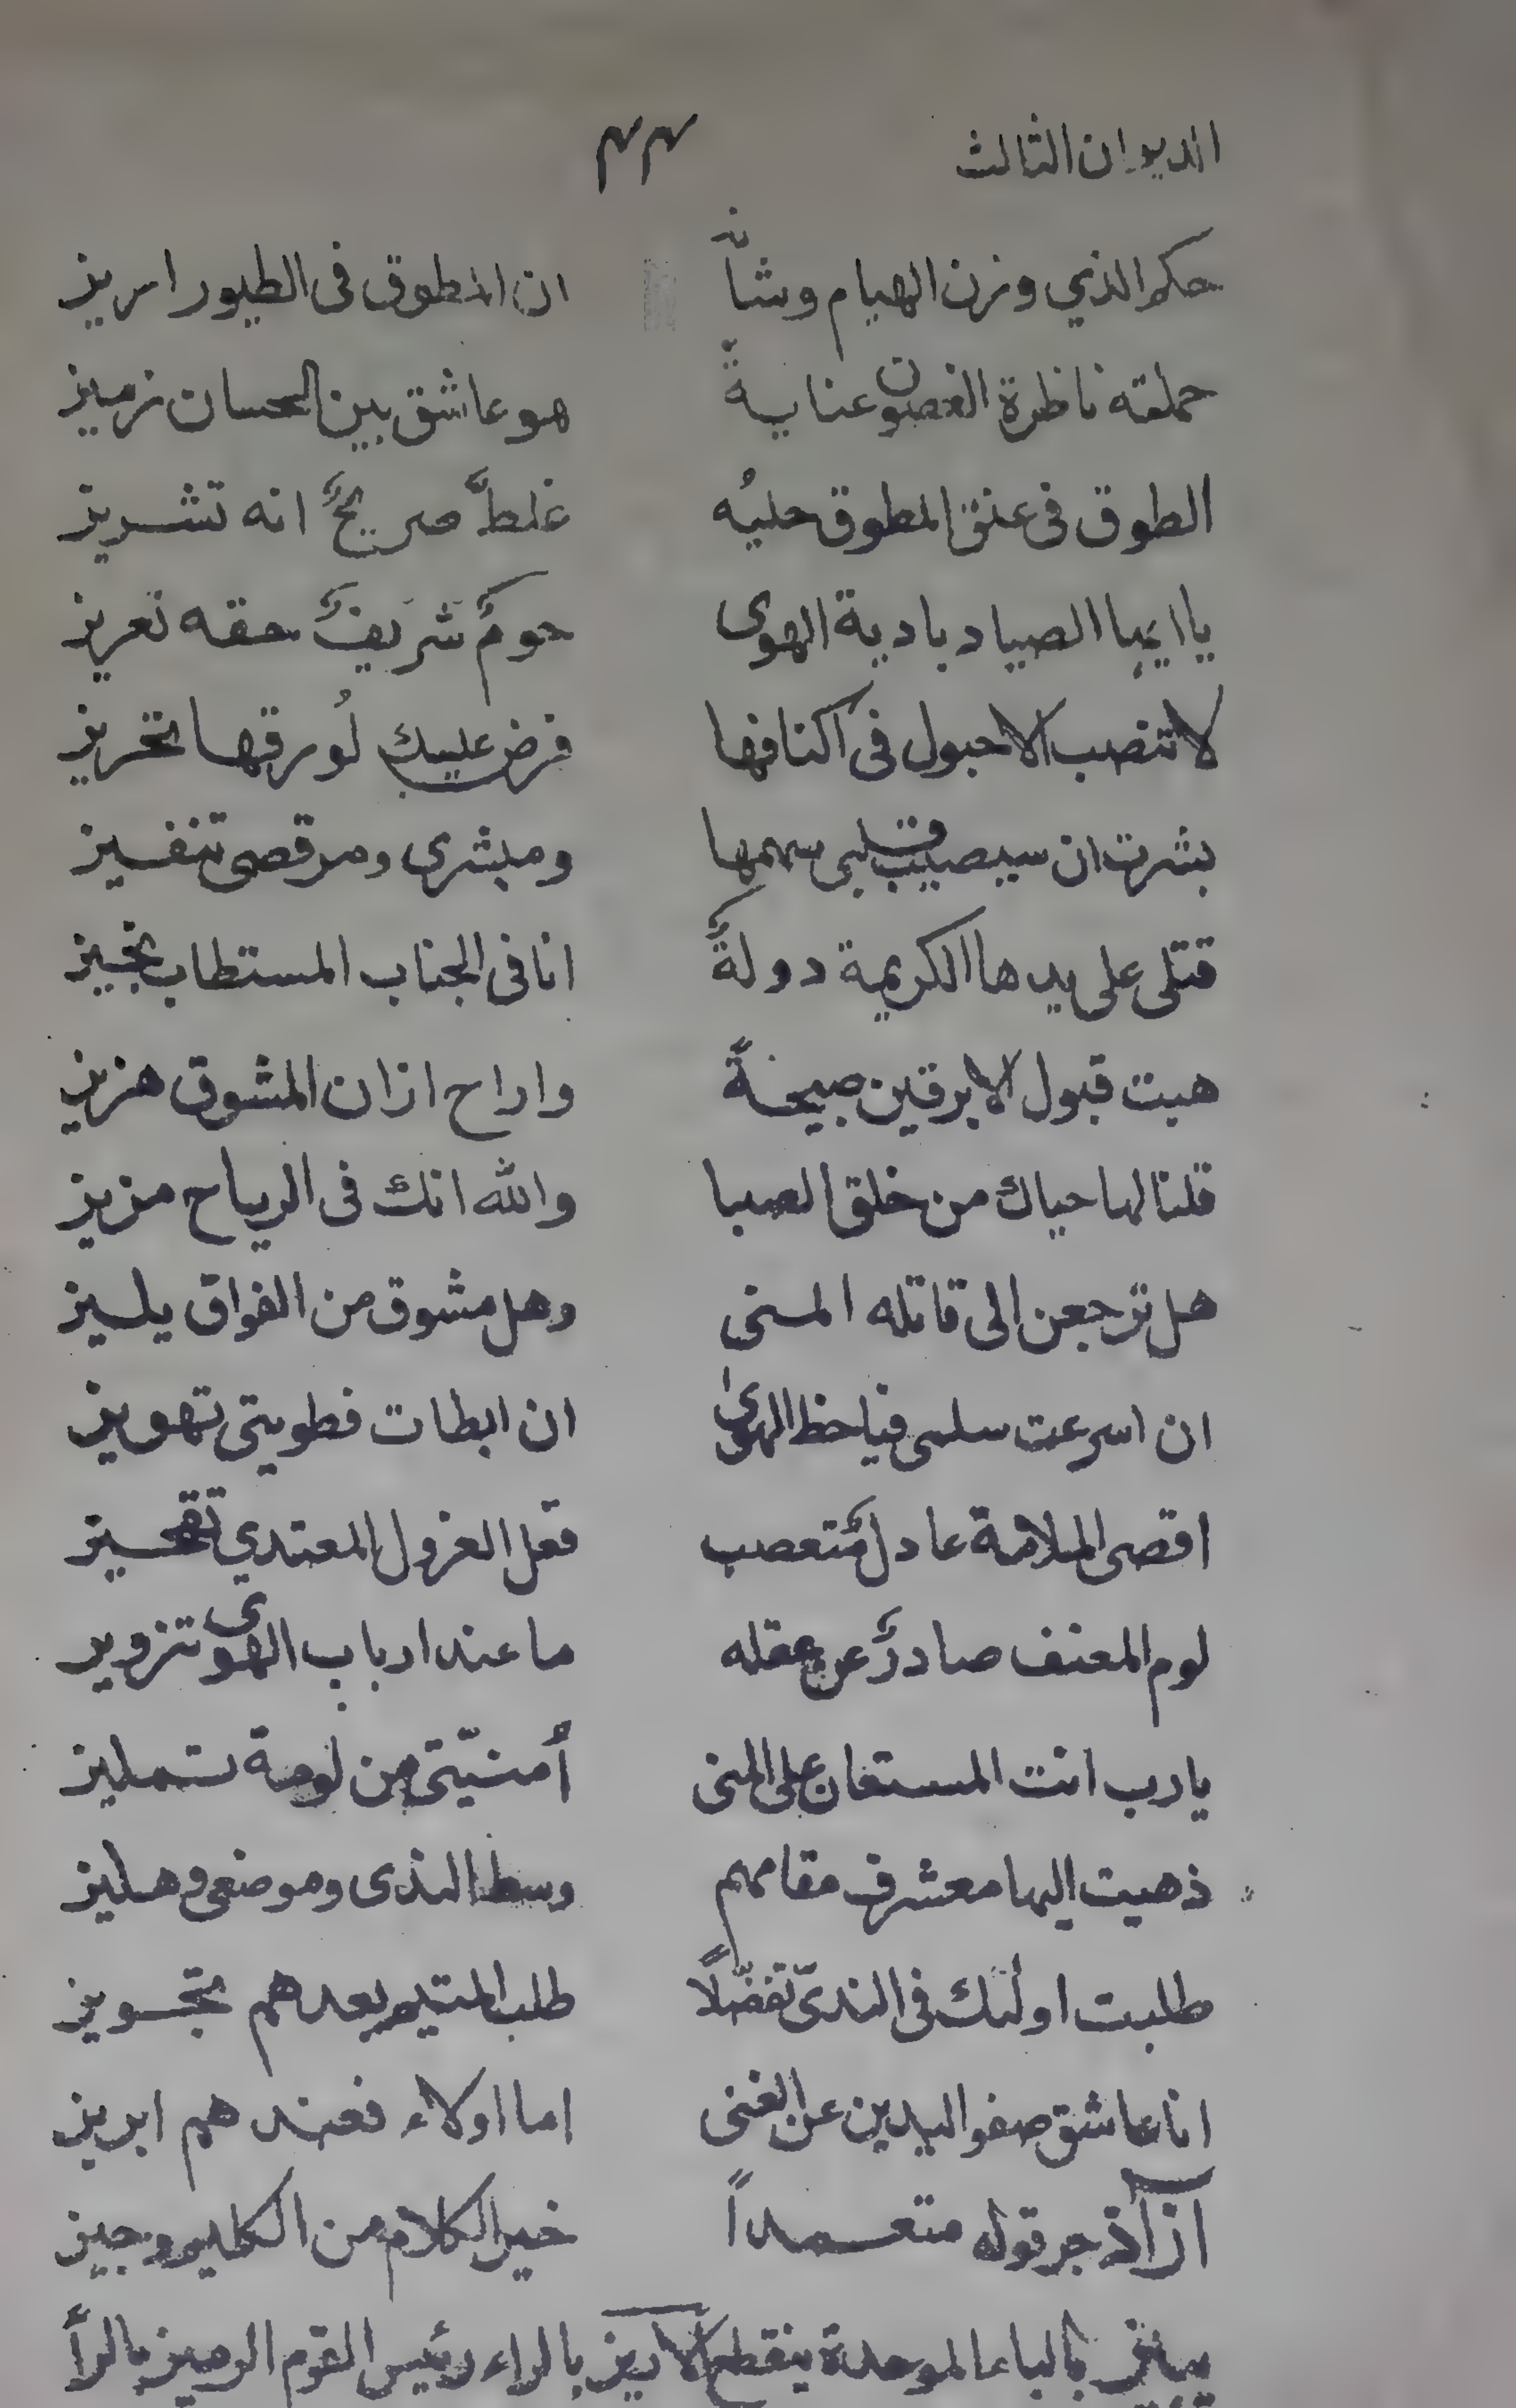 الديوان الثالث ٣٣
حكم الذي وزن الهيام وشأنه ان المطوق فى الطيور اريز
حملته ناظرة الغصون عنايةً هو عاشق بين الحسان رميز
الطوق فى عنق المطوق حليُه غلطٌ صريحٌ انه تشريز
يا ايها الصياد بادية الهوى حومٌ شريفٌ حقه تعريز
لا تنصب الاحبول فى اكنافها فرض عليك لُورقها تحريز
بشرت ان سيصيب قلبى سهمها ومبشرى ومرقصى تنفيز
قتلى على يدها الكريمة دولةٌ انا فى الجناب المستطاب نجيز
هبت قبول الابرقين صبيحةً واراح اذان المشوق هزيز
قلنا لها حياك من خلق الصبا والله انك فى الرياح مزيز
هل ترجعن الى قاتله المنى وهل مشوق من الفواق يلسيز
ان اسرعت سلمى فيا حظ الهوىٰ ان ابطات فطويتى تهويز
اقصى الملامة عادلٌ متعصب فعل العزول المعتدي تقحيز
لوم المعنف صادرٌ عن عقله ما عند ارباب الهوى تزوير
يا رب انت المستعان على المنى أمنيّتى من لومة تمليز
ذهبت اليها معشر مقامهم وسط الندى وموضعى وهليز
طلبت اولئك فى الندىّ تفضّلًا طلب المتيم بعدهم تجويز
انا عاشق صفو اليدين عن الغنى اما اولاء فعندهم ابريز
آزاد جر قوله متعمداً خير الكلام من الكليم وجيز
بالباء الموحدة ينقطع الاريز بالراء رئيس القوم الرميز بالرأ